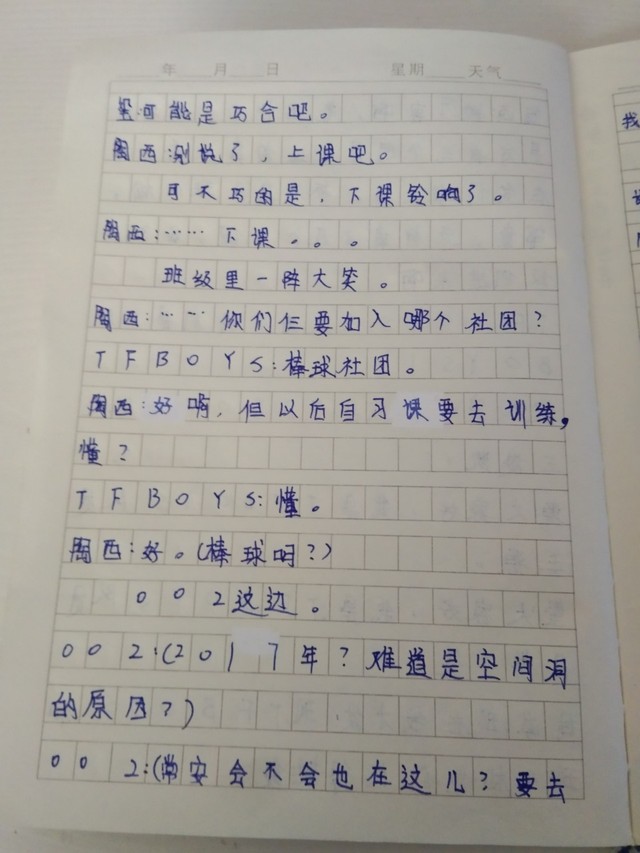 年 月 日 星期 天气
可能是巧合吧。
周西:别说了,上课吧。
可不巧的是,下课铃响了。
周西:……下课。。。
班级里一阵大笑。
周西:……你们仨要加入哪个社团?
TFBOYS:棒球社团。
周西:好啊,但以后自习课要去训练,
懂?
TFBOYS:懂。
周西:好。(棒球吗?)
002这边。
002:(2017年?难道是空间洞
的原因?)
002:(常安会不会也在这儿?要去
找